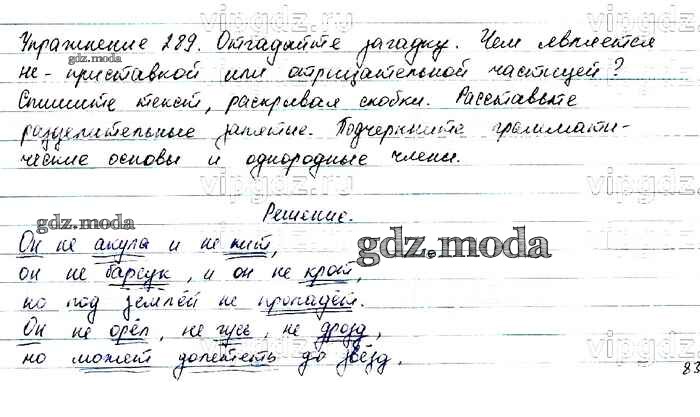 Упражнение 289. Отгадайте загадку. Чем является
не - приставкой или отрицательной частицей?
Спишите текст, раскрывая скобки. Расставьте
разделительные запятые. Подчеркните граммати-
ческие основы и однородные члены.
Решение.
Он не акула и не кит,
он не барсук, и он не крот,
но под землёй не пропадёт.
Он не орёл, не гусь, не дрозд,
но может долететь до звёзд.
83
gdz.moda
gdz.moda
gdz.moda
vipgdz.ru
vipgdz.ru
vipgdz.ru
vipgdz.ru